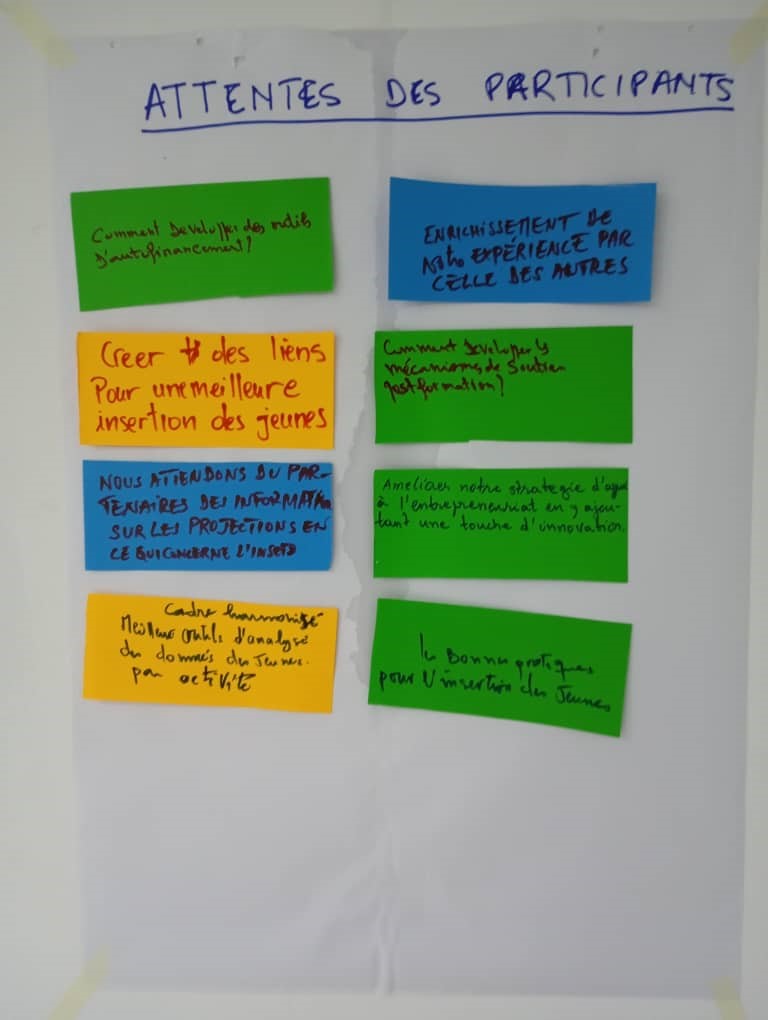 ATTENTES DES PARTICIPANTS
Comment Developper des outils
D'autofinancement?
ENRICHISSEMENT DE
Notre EXPÉRIENCE PAR
CELLE DES AUTRES
Creer des liens
Pour une meilleure
insertion des jeunes
Comment Developper les
mécanismes de Soutien
post formation?
NOUS ATTENDONS DU PAR-
TENAIRES DES INFORMATION
SUR LES PROJECTIONS EN
CE QUI CONCERNE L'INSERTO
Ameliorer notre strategie d'appui
à l'entrepreneuriat en y ajou-
tant une touche d'innovation.
Cadre harmonisé
Meilleur outils d'analyse
des données des Jeunes.
par activité
les Bonnes pratiques
pour l'insertion des Jeunes